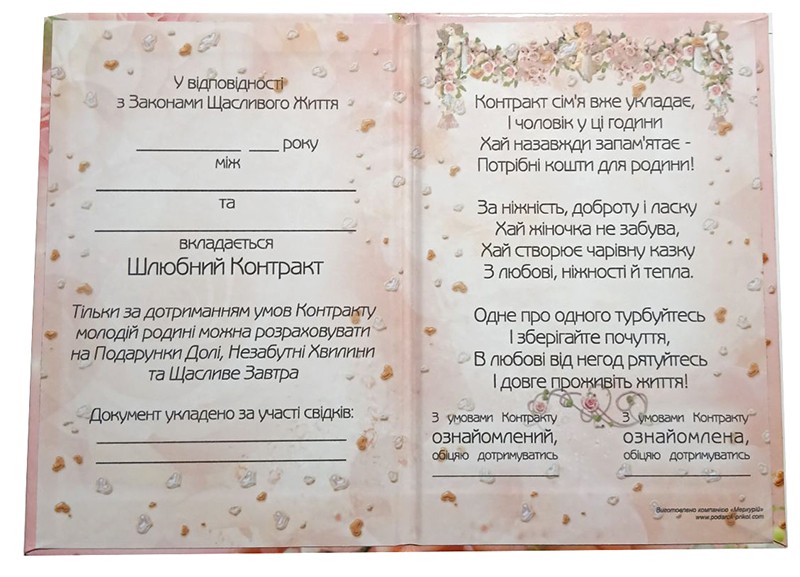 У відповідності
з Законами Щасливого Життя
року
між
та
вкладається
Шлюбний Контракт
Тільки за дотриманням умов Контракту
молодій родині можна розраховувати
на Подарунки Долі, Незабутні Хвилини
та Щасливе Завтра
Документ укладено за участі свідків:
Контракт сім'я вже укладає,
І чоловік у ці години
Хай назавжди запам'ятає -
Потрібні кошти для родини!
За ніжність, доброту і ласку
Хай жіночка не забува,
Хай створює чарівну казку
З любові, ніжності й тепла.
Одне про одного турбуйтесь
І зберігайте почуття,
В любові від негод рятуйтесь
І довге проживіть життя!
З умовами Контракту
ознайомлений,
обіцяю дотримуватись
З умовами Контракту
ознайомлена,
обіцяю дотримуватись
Виготовлено компанією «Меркурій»
www.podarok-prikol.com